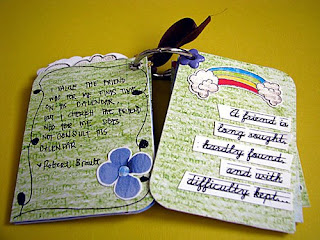 I VALUE THE FRIEND
WHO FOR ME FINDS TIME
ON HIS CALENDAR,
BUT I CHERISH THE FRIEND
WHO FOR ME DOES
NOT CONSULT HIS
CALENDAR
~ Robert Brault
A friend is
long sought,
hardly found
and with
difficulty kept...